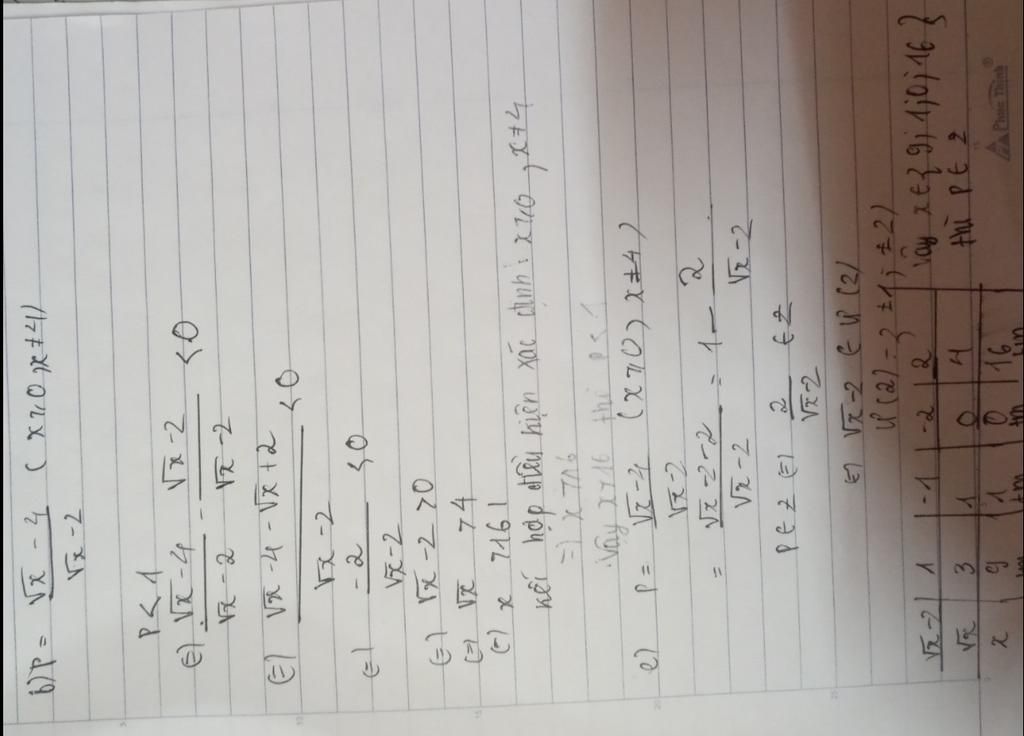 b) P = √x - 4 / √x - 2 ( x ≥ 0, x ≠ 4)
P < 1
(=) √x - 4 / √x - 2 - √x - 2 / √x - 2 < 0
(=) √x - 4 - √x + 2 / √x - 2 < 0
(=) - 2 / √x - 2 < 0
(=) √x - 2 > 0
(=) √x > 4
(=) x > 16
kết hợp điều kiện xác định : x ≥ 0 , x ≠ 4
=) x > 16
Vậy x > 16 thì P < 1
c) P = √x - 4 / √x - 2 ( x ≥ 0, x ≠ 4)
= √x - 2 - 2 / √x - 2 = 1 - 2 / √x - 2
P ∈ Z (=) 2 / √x - 2 ∈ Z
(=) √x - 2 ∈ Ư (2)
Ư (2) = { ±1; ±2 }
√x - 2 | 1 | -1 | -2 | 2
√x | 3 | 1 | 0 | 4
x | 9 | 1 | 0 | 16
tm tm tm
Vậy x ∈ { 9; 1; 0; 16 }
thì P ∈ Z
Phúc Thịnh®